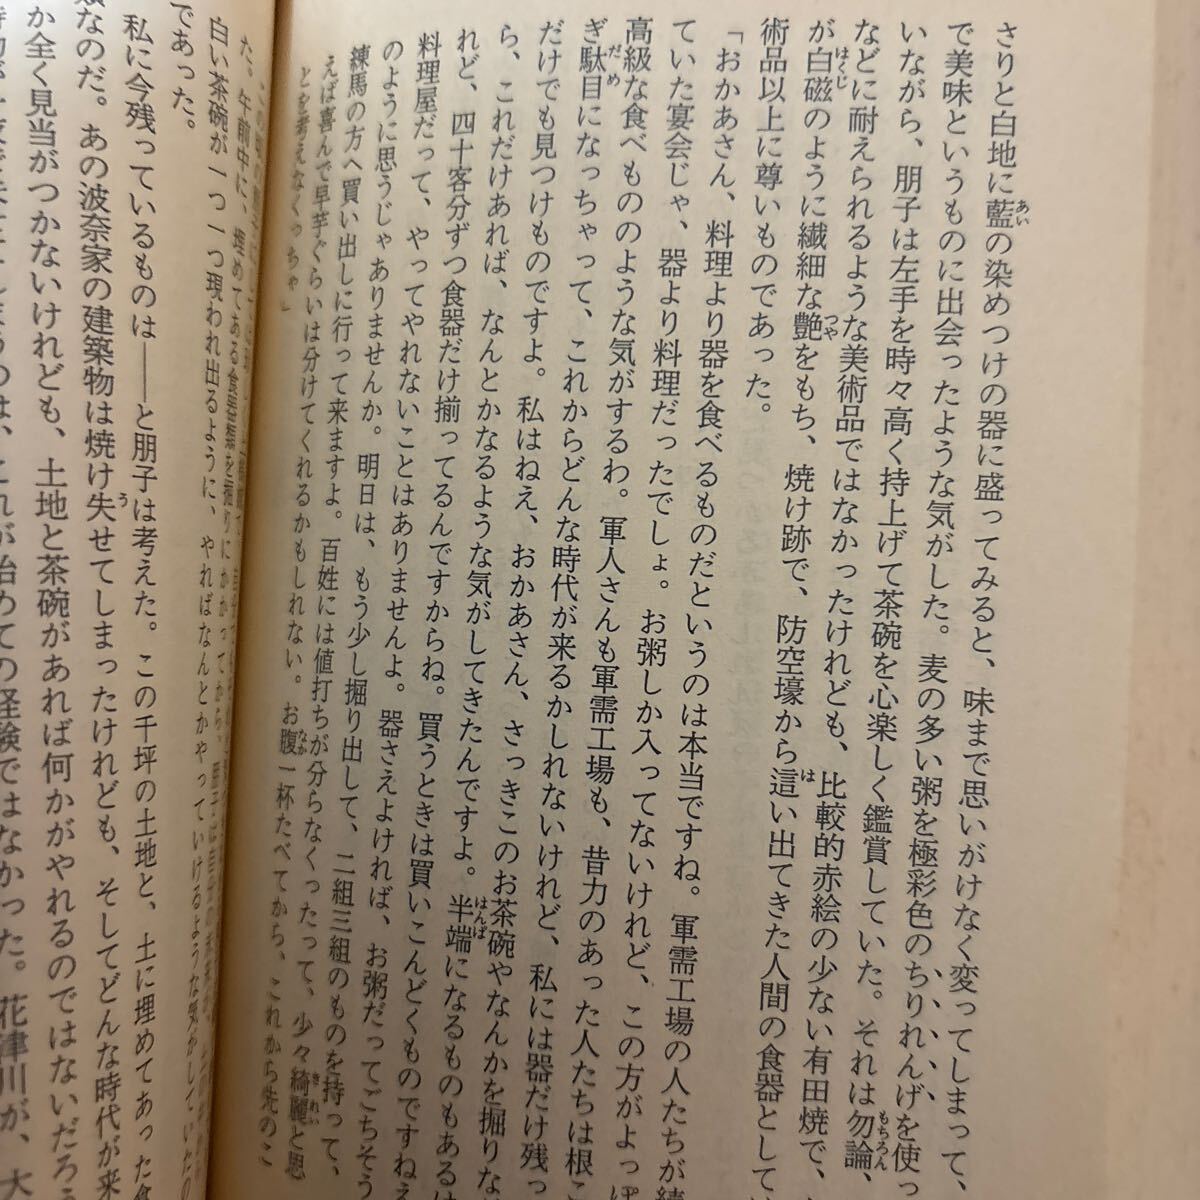 さりと白地に藍の染めつけの器に盛ってみると、味まで思いがけなく変ってしまって、
で美味というものに出会ったような気がした。麦の多い粥を極彩色のちりれんげを使っ
いながら、朋子は左手を時々高く持上げて茶碗を心楽しく鑑賞していた。それは勿論、
などに耐えられるような美術品ではなかったけれども、比較的赤絵の少ない有田焼で、
が白磁のように繊細な艶をもち、焼け跡で、防空壕から這い出てきた人間の食器として
術品以上に尊いものであった。
「おかあさん、料理より器を食べるものだというのは本当ですね。軍需工場の人たちが
ていた宴会じゃ、器より料理だったでしょ。お粥しか入ってないけれど、この方がよっ
高級な食べもののような気がするわ。軍人さんも軍需工場も、昔力のあった人たちは根こ
ぎ駄目になっちゃって、これからどんな時代が来るかしれないけれど、私には器だけ残っ
だけでも見つけものですよ。私はねえ、おかあさん、さっきこのお茶碗やなんかを掘りな
ら、これだけあれば、なんとかなるような気がしてきたんですよ。半端になるものもあるけ
れど、四十客分ずつ食器だけ揃ってるんですからね。買うときは買いこんどくものですねえ
料理屋だって、やってやれないことはありませんよ。器さえよければ、お粥だってごちそう
のように思うじゃありませんか。明日は、もう少し掘り出して、二組三組のものを持って、
練馬の方へ買い出しに行って来ますよ。百姓には値打ちが分らなくったって、少々綺麗と思
えば喜んで早芋ぐらいは分けてくれるかもしれない。お腹一杯たべてから、これから先のこ
とを考えなくっちゃ」
た。午前中に、埋めてある食器類を掘りにかかってから、
白い茶碗が一つ一つ現われ出るように、やればなんとかやっていけるような気がしていたの
であった。
私に今残っているものは——と朋子は考えた。この千坪の土地と、土に埋めてあった食
なのだ。あの波奈家の建築物は焼け失せてしまったけれども、そしてどんな時代が来
か全く見当がつかないけれども、土地と茶碗があれば何かがやれるのではないだろう
のは、これが始めての経験ではなかった。花津川が、大